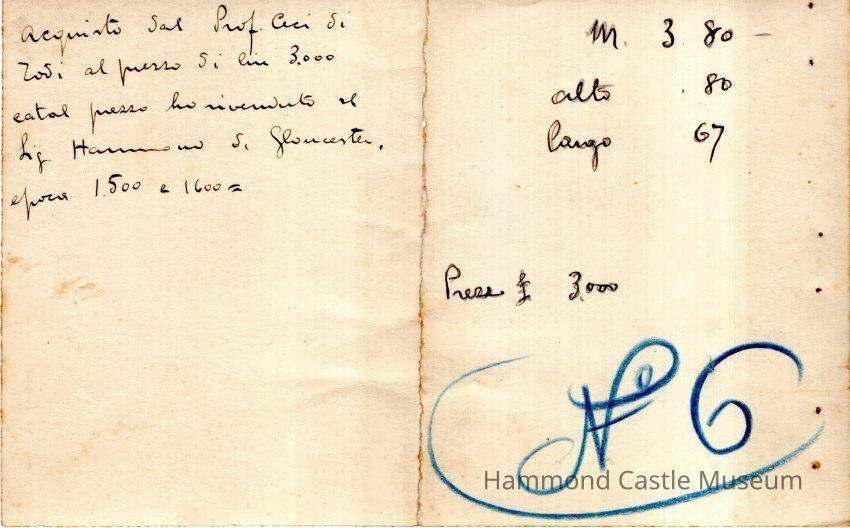 Acquisto dal Prof. Ceci di
Todi al prezzo di lire 3.000
e a tal prezzo ho rivenduto al
Sig. Hammond di Gloucester.
epoca 1.500 e 1600 =
M. 3 80 -
alto . 80
largo 67
Prezzo £ 3.000
N° 6
Hammond Castle Museum